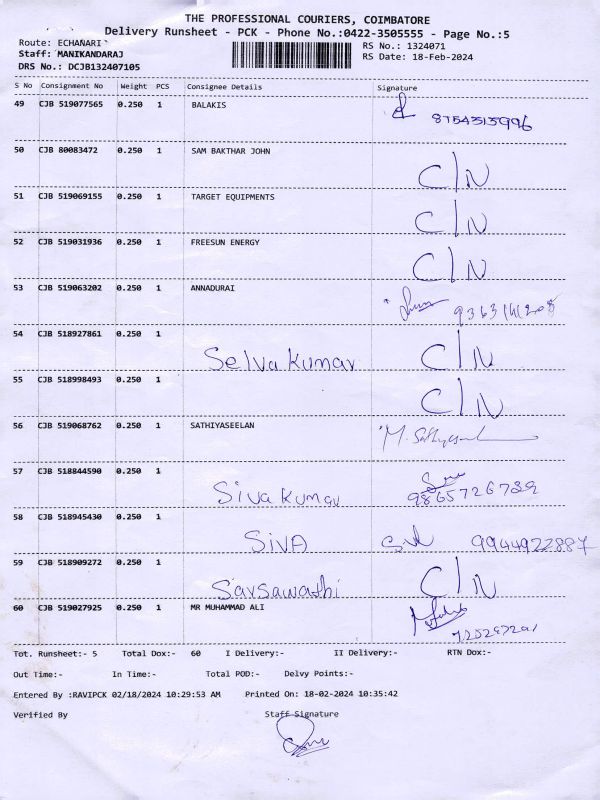 THE PROFESSIONAL COURIERS, COIMBATORE
Delivery Runsheet - PCK - Phone No.:0422-3505555 - Page No.:5
Route: ECHANARI
Staff: MANIKANDARAJ
DRS No.: DCJB132407105
RS No.: 1324071
RS Date: 18-Feb-2024
S No Consignment No Weight PCS Consignee Details Signature
49 CJB 519077565 0.250 1 BALAKIS
50 CJB 80083472 0.250 1 SAM BAKTHAR JOHN C/N
51 CJB 519069155 0.250 1 TARGET EQUIPMENTS C/N
52 CJB 519031936 0.250 1 FREESUN ENERGY C/N
53 CJB 519063202 0.250 1 ANNADURAI
54 CJB 518927861 0.250 1 Selva Kumar C/N
55 CJB 518998493 0.250 1 C/N
56 CJB 519068762 0.250 1 SATHIYASEELAN
57 CJB 518844590 0.250 1 Siva Kumar 9865726739
58 CJB 518945430 0.250 1 SIVA 9944922887
59 CJB 518909272 0.250 1 Sarsawathi C/N
60 CJB 519027925 0.250 1 MR MUHAMMAD ALI
Tot. Runsheet:- 5 Total Dox:- 60 I Delivery:- II Delivery:- RTN Dox:-
Out Time:- In Time:- Total POD:- Delvy Points:-
Entered By :RAVIPCK 02/18/2024 10:29:53 AM Printed On: 18-02-2024 10:35:42
Verified By Staff Signature